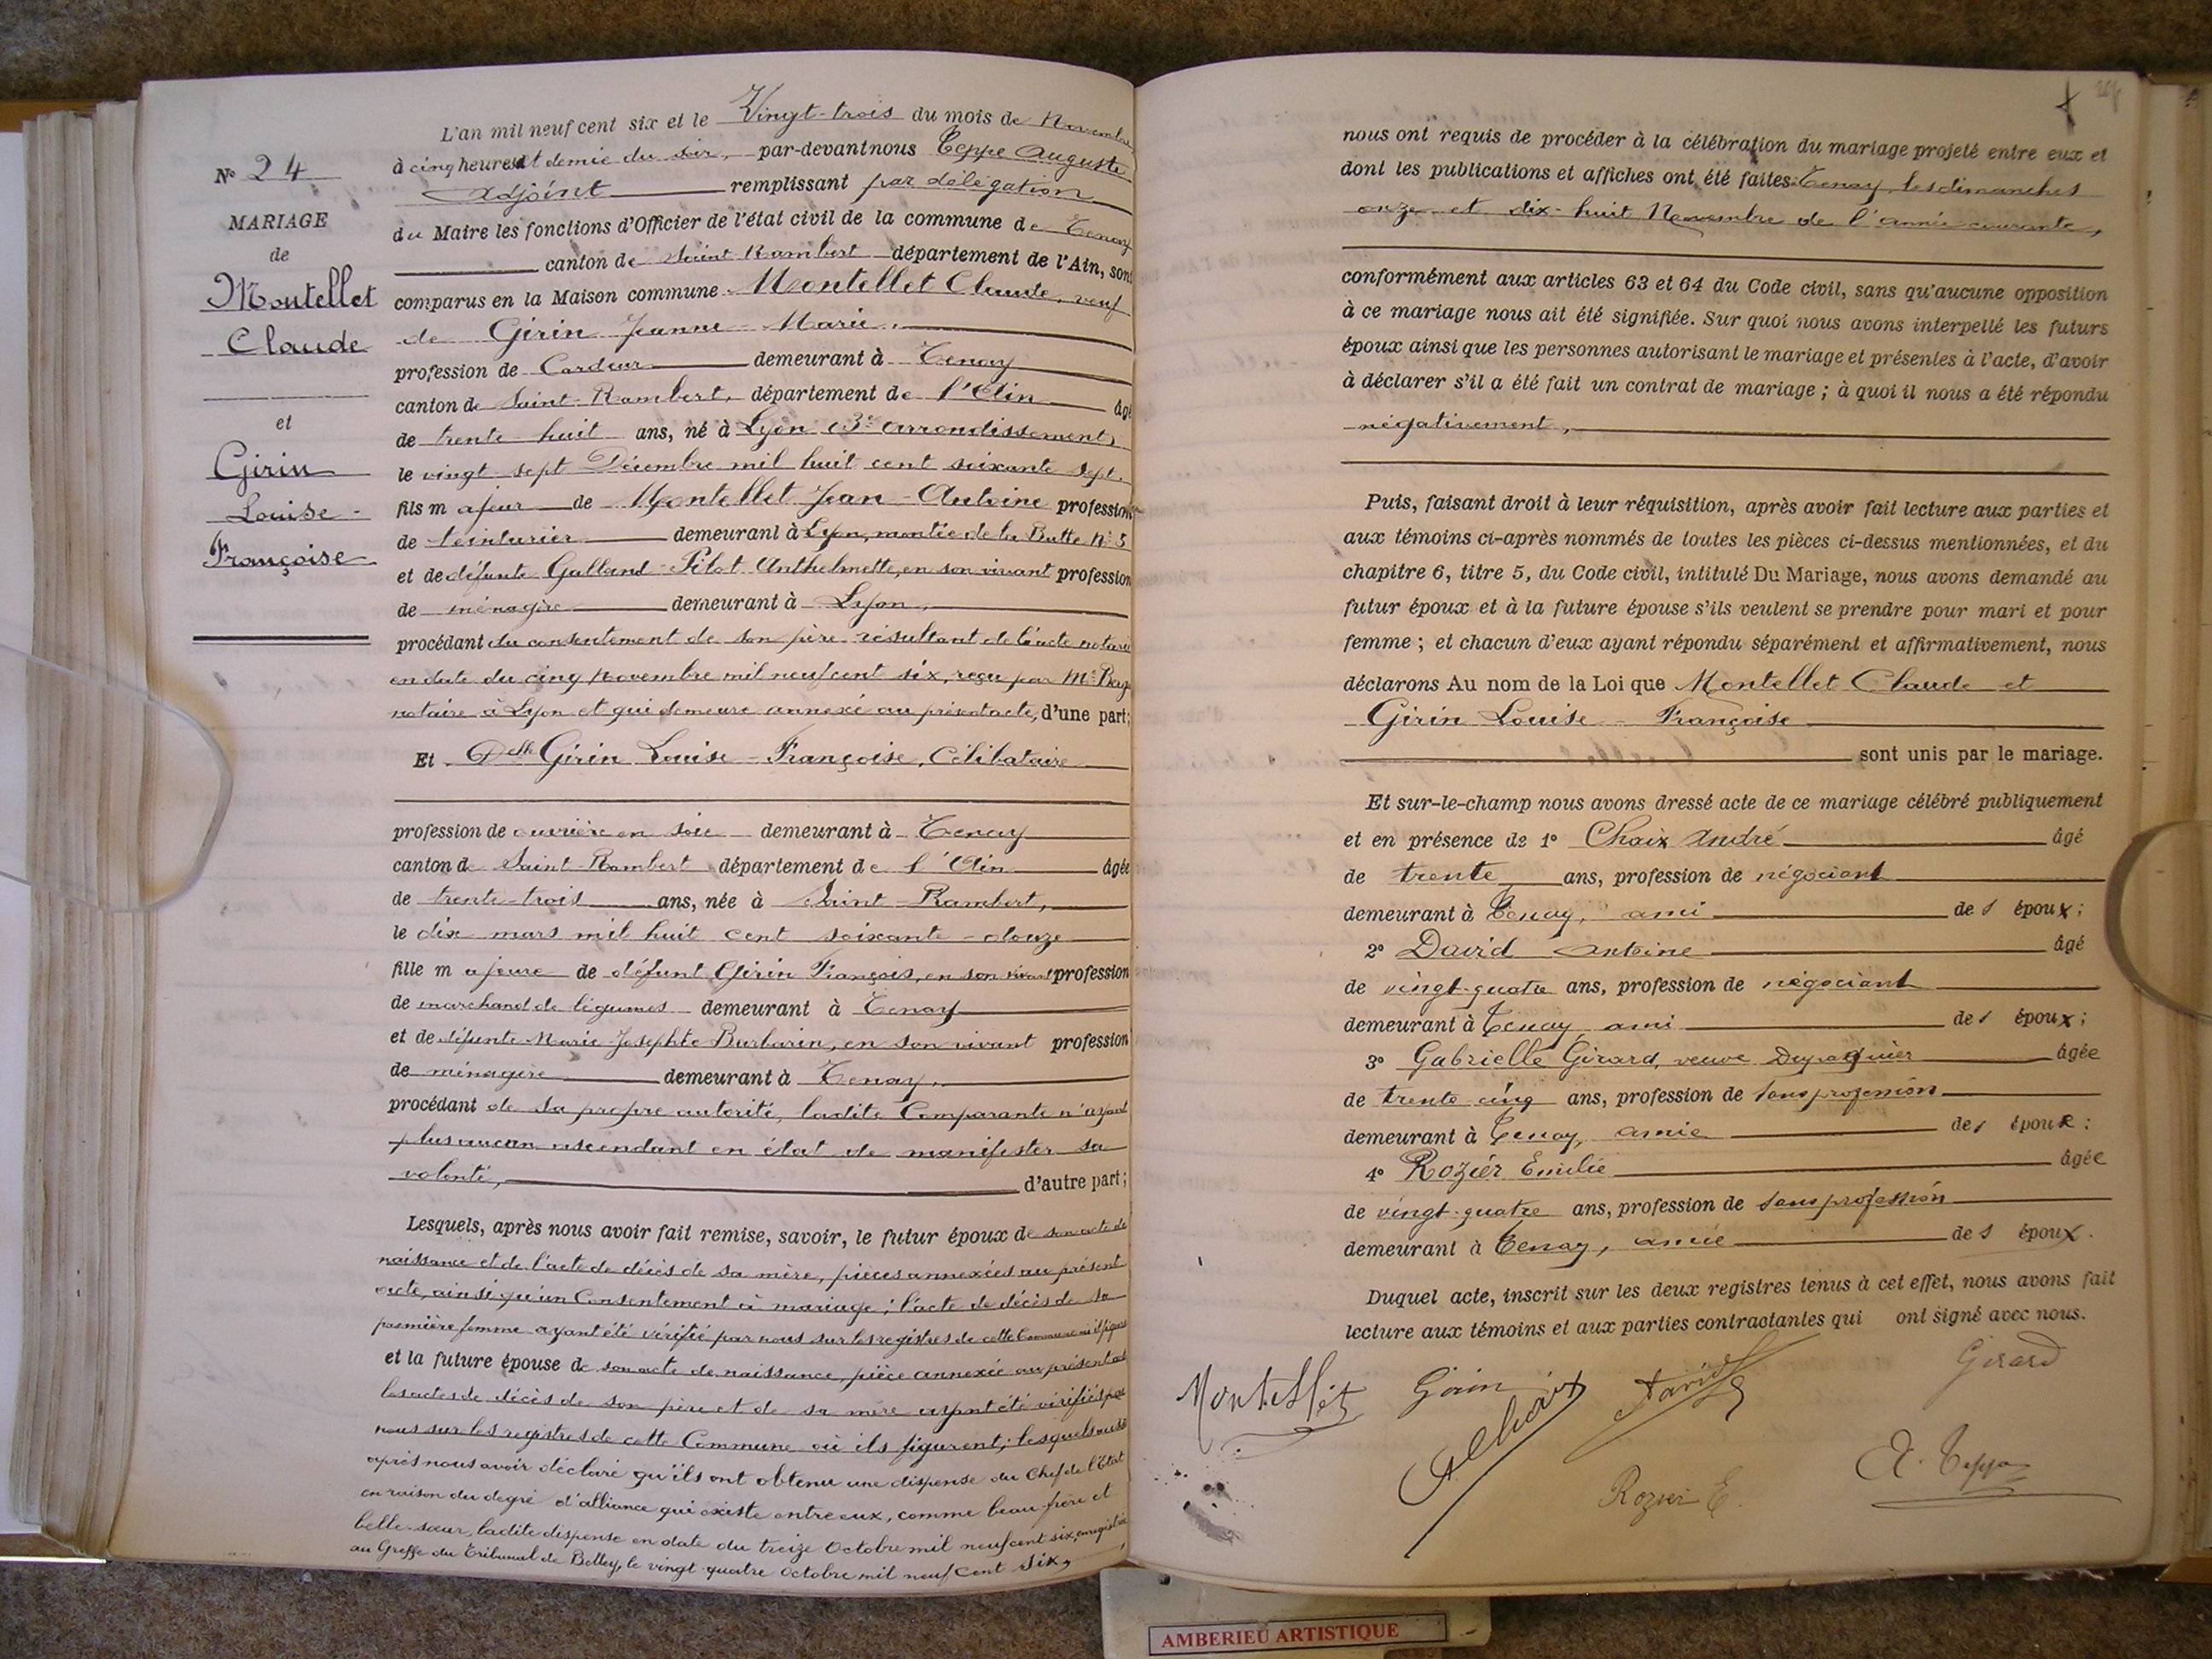 N° 24
MARIAGE
de
Montellet
Claude
et
Girin
Louise-
Françoise
L'an mil neuf cent six et le Vingt-trois du mois de Novembre
à cinq heures et demie du soir, par-devant nous Teppe Auguste
adjoint remplissant par délégation
du Maire les fonctions d'Officier de l'état civil de la commune de Tenay
canton de Saint-Rambert département de l'Ain, sont
comparus en la Maison commune Montellet Claude, veuf
de Girin Jeanne-Marie,
profession de Cardeur demeurant à Tenay
canton de Saint-Rambert, département de l'Ain âgé
de trente huit ans, né à Lyon (3e arrondissement)
le vingt-sept Décembre mil huit cent soixante sept,
fils majeur de Montellet Jean-Antoine profession
de teinturier demeurant à Lyon, montée de la Butte N° 5
et de défunte Galland-Pilot Anthelmette, en son vivant profession
de ménagère demeurant à Lyon,
procédant du consentement de son père résultant de l'acte notarié
en date du cinq Novembre mil neuf cent six, reçu par Me
notaire à Lyon et qui demeure annexé au présent acte, d'une part;
Et Delle Girin Louise-Françoise, Célibataire
profession de ouvrière en soie demeurant à Tenay
canton de Saint-Rambert département de l'Ain âgée
de trente-trois ans, née à Saint-Rambert,
le dix mars mil huit cent soixante-douze
fille majeure de défunt Girin François, en son vivant profession
de marchand de légumes demeurant à Tenay
et de défunte Marie-Josephte Barbarin, en son vivant profession
de ménagère demeurant à Tenay,
procédant de sa propre autorité, ladite Comparante n'ayant
plus aucun ascendant en état de manifester sa
volonté, d'autre part;
Lesquels, après nous avoir fait remise, savoir, le futur époux de son acte de
naissance et de l'acte de décès de sa mère, pièces annexées au présent
acte, ainsi qu'un Consentement à mariage; l'acte de décès de sa
première femme ayant été vérifié par nous sur les registres de cette Commune où il figure
et la future épouse de son acte de naissance, pièce annexée au présent acte
les actes de décès de son père et de sa mère ayant été vérifiés par
nous sur les registres de cette Commune où ils figurent; lesquels aussi
après nous avoir déclaré qu'ils ont obtenu une dispense du Chef de l'Etat
en raison du degré d'alliance qui existe entre eux, comme beau-frère et
belle-sœur, ladite dispense en date du treize Octobre mil neuf cent six, enregistrée
au Greffe du Tribunal de Belley, le vingt-quatre Octobre mil neuf cent six,
nous ont requis de procéder à la célébration du mariage projeté entre eux et
dont les publications et affiches ont été faites: Tenay, les dimanches
onze et dix-huit Novembre de l'année courante,
conformément aux articles 63 et 64 du Code civil, sans qu'aucune opposition
à ce mariage nous ait été signifiée. Sur quoi nous avons interpellé les futurs
époux ainsi que les personnes autorisant le mariage et présentes à l'acte, d'avoir
à déclarer s'il a été fait un contrat de mariage; à quoi il nous a été répondu
négativement,
Puis, faisant droit à leur réquisition, après avoir fait lecture aux parties et
aux témoins ci-après nommés de toutes les pièces ci-dessus mentionnées, et du
chapitre 6, titre 5, du Code civil, intitulé Du Mariage, nous avons demandé au
futur époux et à la future épouse s'ils veulent se prendre pour mari et pour
femme; et chacun d'eux ayant répondu séparément et affirmativement, nous
déclarons Au nom de la Loi que Montellet Claude et
Girin Louise-Françoise
sont unis par le mariage.
Et sur-le-champ nous avons dressé acte de ce mariage célébré publiquement
et en présence de 1° Chaix André âgé
de trente ans, profession de négociant
demeurant à Tenay, ami des époux;
2° David Antoine âgé
de vingt-quatre ans, profession de négociant
demeurant à Tenay, ami des époux;
3° Gabrielle Girard, veuve âgée
de trente cinq ans, profession de sans profession
demeurant à Tenay, amie des époux;
4° Rozier Emilie âgée
de vingt-quatre ans, profession de sans profession
demeurant à Tenay, amie des époux.
Duquel acte, inscrit sur les deux registres tenus à cet effet, nous avons fait
lecture aux témoins et aux parties contractantes qui ont signé avec nous.
Montellet Girin AChaix David Girard
Rozier E. A. Teppe
AMBERIEU ARTISTIQUE